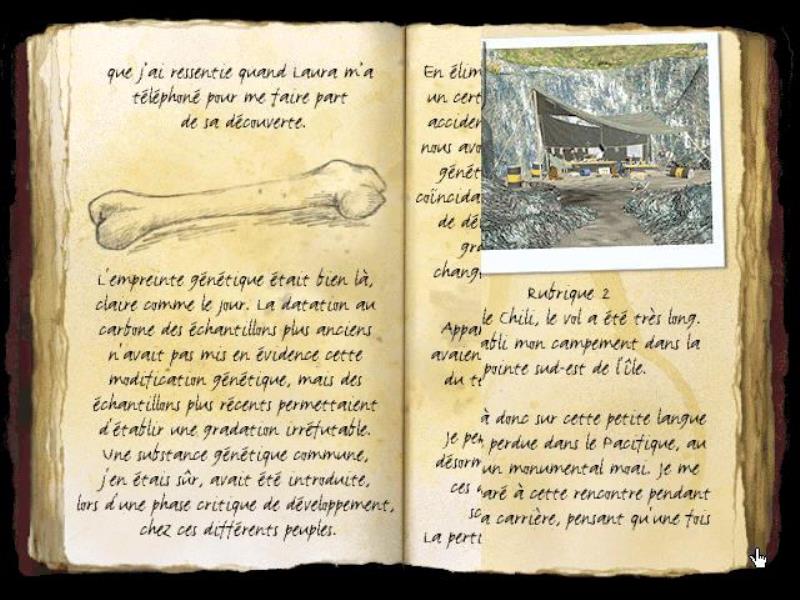 que j'ai ressentie quand Laura m'a
téléphoné pour me faire part
de sa découverte.
L'empreinte génétique était bien là,
claire comme le jour. La datation au
carbone des échantillons plus anciens
n'avait pas mis en évidence cette
modification génétique, mais des
échantillons plus récents permettaient
d'établir une gradation irréfutable.
Une substance génétique commune,
j'en étais sûr, avait été introduite,
lors d'une phase critique de développement,
chez ces différents peuples.
En élim
un cert
acciden
nous avo
génét
coïncida
de dé
gra
chang
Appa
avaien
du te
Je pe
désorm
ces
La perti
Rubrique 2
le Chili, le vol a été très long.
abli mon campement dans la
pointe sud-est de l'île.
à donc sur cette petite langue
perdue dans le Pacifique, au
un monumental moai. Je me
aré à cette rencontre pendant
a carrière, pensant qu'une fois